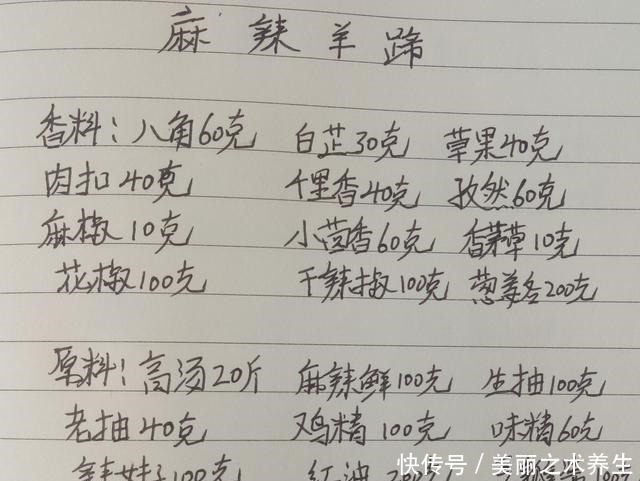 麻辣羊蹄
香料：八角60克 白芷30克 草果40克
肉扣40克 千里香40克 孜然60克
麻椒10克 小茴香60克 香茅草10克
花椒100克 干辣椒100克 葱姜各200克
原料：高汤20斤 麻辣鲜100克 生抽100克
老抽40克 鸡精100克 味精60克
辣妹子100克 红油
快传号／美丽之术养生